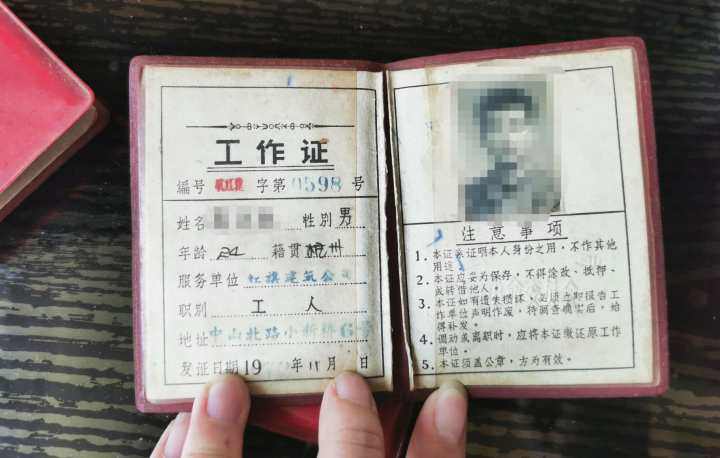 工作证
编号 字第0598号
姓名 性别 男
年龄 24 籍贯 杭州
服务单位 红旗建筑公司
职别 工人
地址 中山北路小新桥6号
发证日期19 年11月 日
注意事项
1. 本证系证明本人身份之用,不作其他
用途。
2. 本证应妥为保存,不得涂改、抵押、
或转借他人。
3. 本证如有遗失损坏,必须立即报告工
作单位声明作废,待调查确实后,始
得补发。
4. 调动或离职时,应将本证缴还原工作
单位。
5. 本证须盖公章,方为有效。